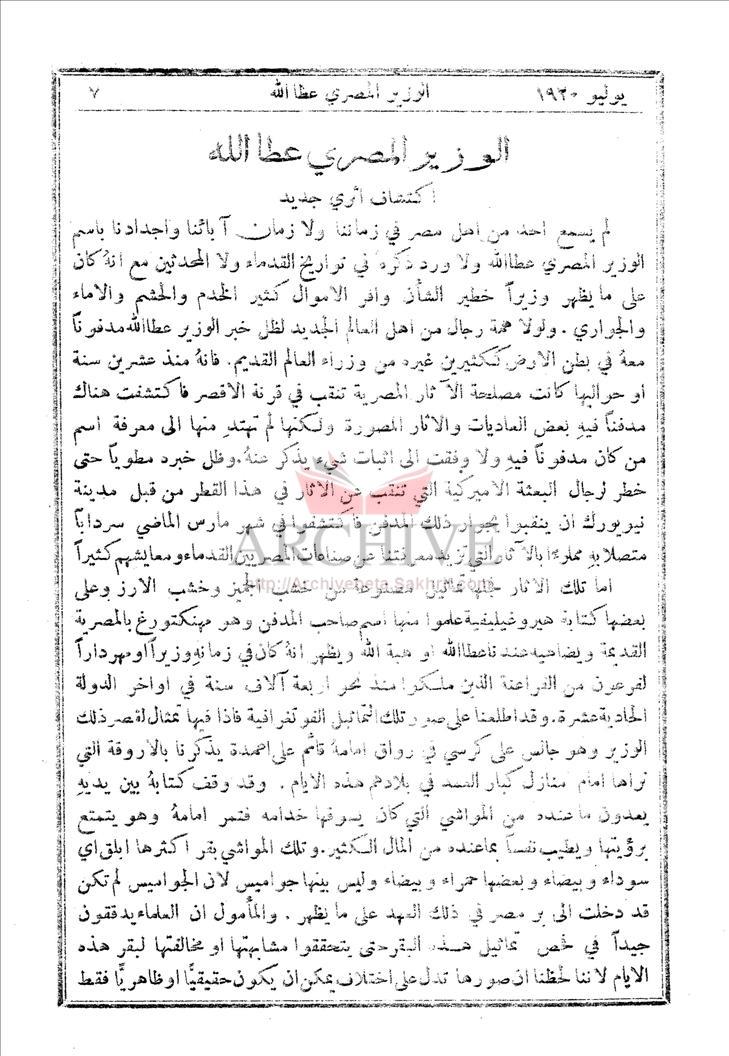 يوليو ١٩٢٠ الوزير المصري عطا الله ٧
الوزير المصري عطا الله
اكتشاف اثري جديد
لم يسمع احد من اهل مصر في زماننا ولا زمان آبائنا واجدادنا باسم
الوزير المصري عطا الله ولا ورد ذكره في تواريخ القدماء ولا المحدثين مع انهُ كان
على ما يظهر وزيراً خطير الشأن وافر الاموال كثير الخدم والحشم والاماء
والجواري . ولولا همة رجال من اهل العالم الجديد لظل خبر الوزير عطا الله مدفوناً
معهُ في بطن الارض ككثيرين غيره من وزراء العالم القديم . فانهُ منذ عشرين سنة
او حواليها كانت مصلحة الآثار المصرية تنقب في قرنة الاقصر فاكتشفت هناك
مدفناً فيهِ بعض العاديات والآثار المصورة ولكنها لم تهتدِ منها الى معرفة اسم
من كان مدفوناً فيهِ ولا وفقت الى اثبات شيء يذكر عنهُ . وظل خبره مطوياً حتى
خطر لرجال البعثة الاميركية التي تنقب عن الاثار في هذا القطر من قبل مدينة
نيويورك ان ينقبوا بجوار ذلك المدفن فاكتشفوا في شهر مارس الماضي سرداباً
متصلاً بهِ مملوءًا بالآثار التي تزيد معرفتنا عن صناعات المصريين القدماء ومعايشهم كثيراً
ARCHIVE
http://Archivebeta.Sakhrit.com
اما تلك الاثار فكلها تماثيل مصنوعة من خشب الجميز وخشب الارز وعلى
بعضها كتابة هيروغليفية علموا منها اسم صاحب المدفن وهو مهنكتورع بالمصرية
القديمة ويضاهيه عندنا عطا الله او هبة الله ويظهر انهُ كان في زمانهِ وزيراً او مهرداراً
لفرعون من الفراعنة الذين ملكوا منذ نحو اربعة آلاف سنة في اواخر الدولة
الحادية عشرة . وقد اطلعنا على صور تلك التماثيل الفوتغرافية فاذا فيها تمثال لقصر ذلك
الوزير وهو جالس على كرسي في رواق امامهُ قائم على اعمدة يذكرنا بالاروقة التي
نراها امام منازل كبار العمد في بلادهم هذه الايام . وقد وقف كتابهُ بين يديهِ
يعدون ما عنده من المواشي التي كان يسوقها خدامه فتمر امامهُ وهو يتمتع
برؤيتها ويطيب نفساً بما عنده من المال الكثير . وتلك المواشي بقر اكثرها ابلق اي
سوداء وبيضاء وبعضها حمراء وبيضاء وليس بينها جواميس لان الجواميس لم تكن
قد دخلت الى بر مصر في ذلك العهد على ما يظهر . والمأمول ان العلماء يدققون
جيداً في فحص تماثيل هذه البقر حتى يتحققوا مشابهتها او مخالفتها لبقر هذه
الايام لاننا لحظنا ان صورها تدل على اختلاف يمكن ان يكون حقيقيًّا او ظاهريًّا فقط